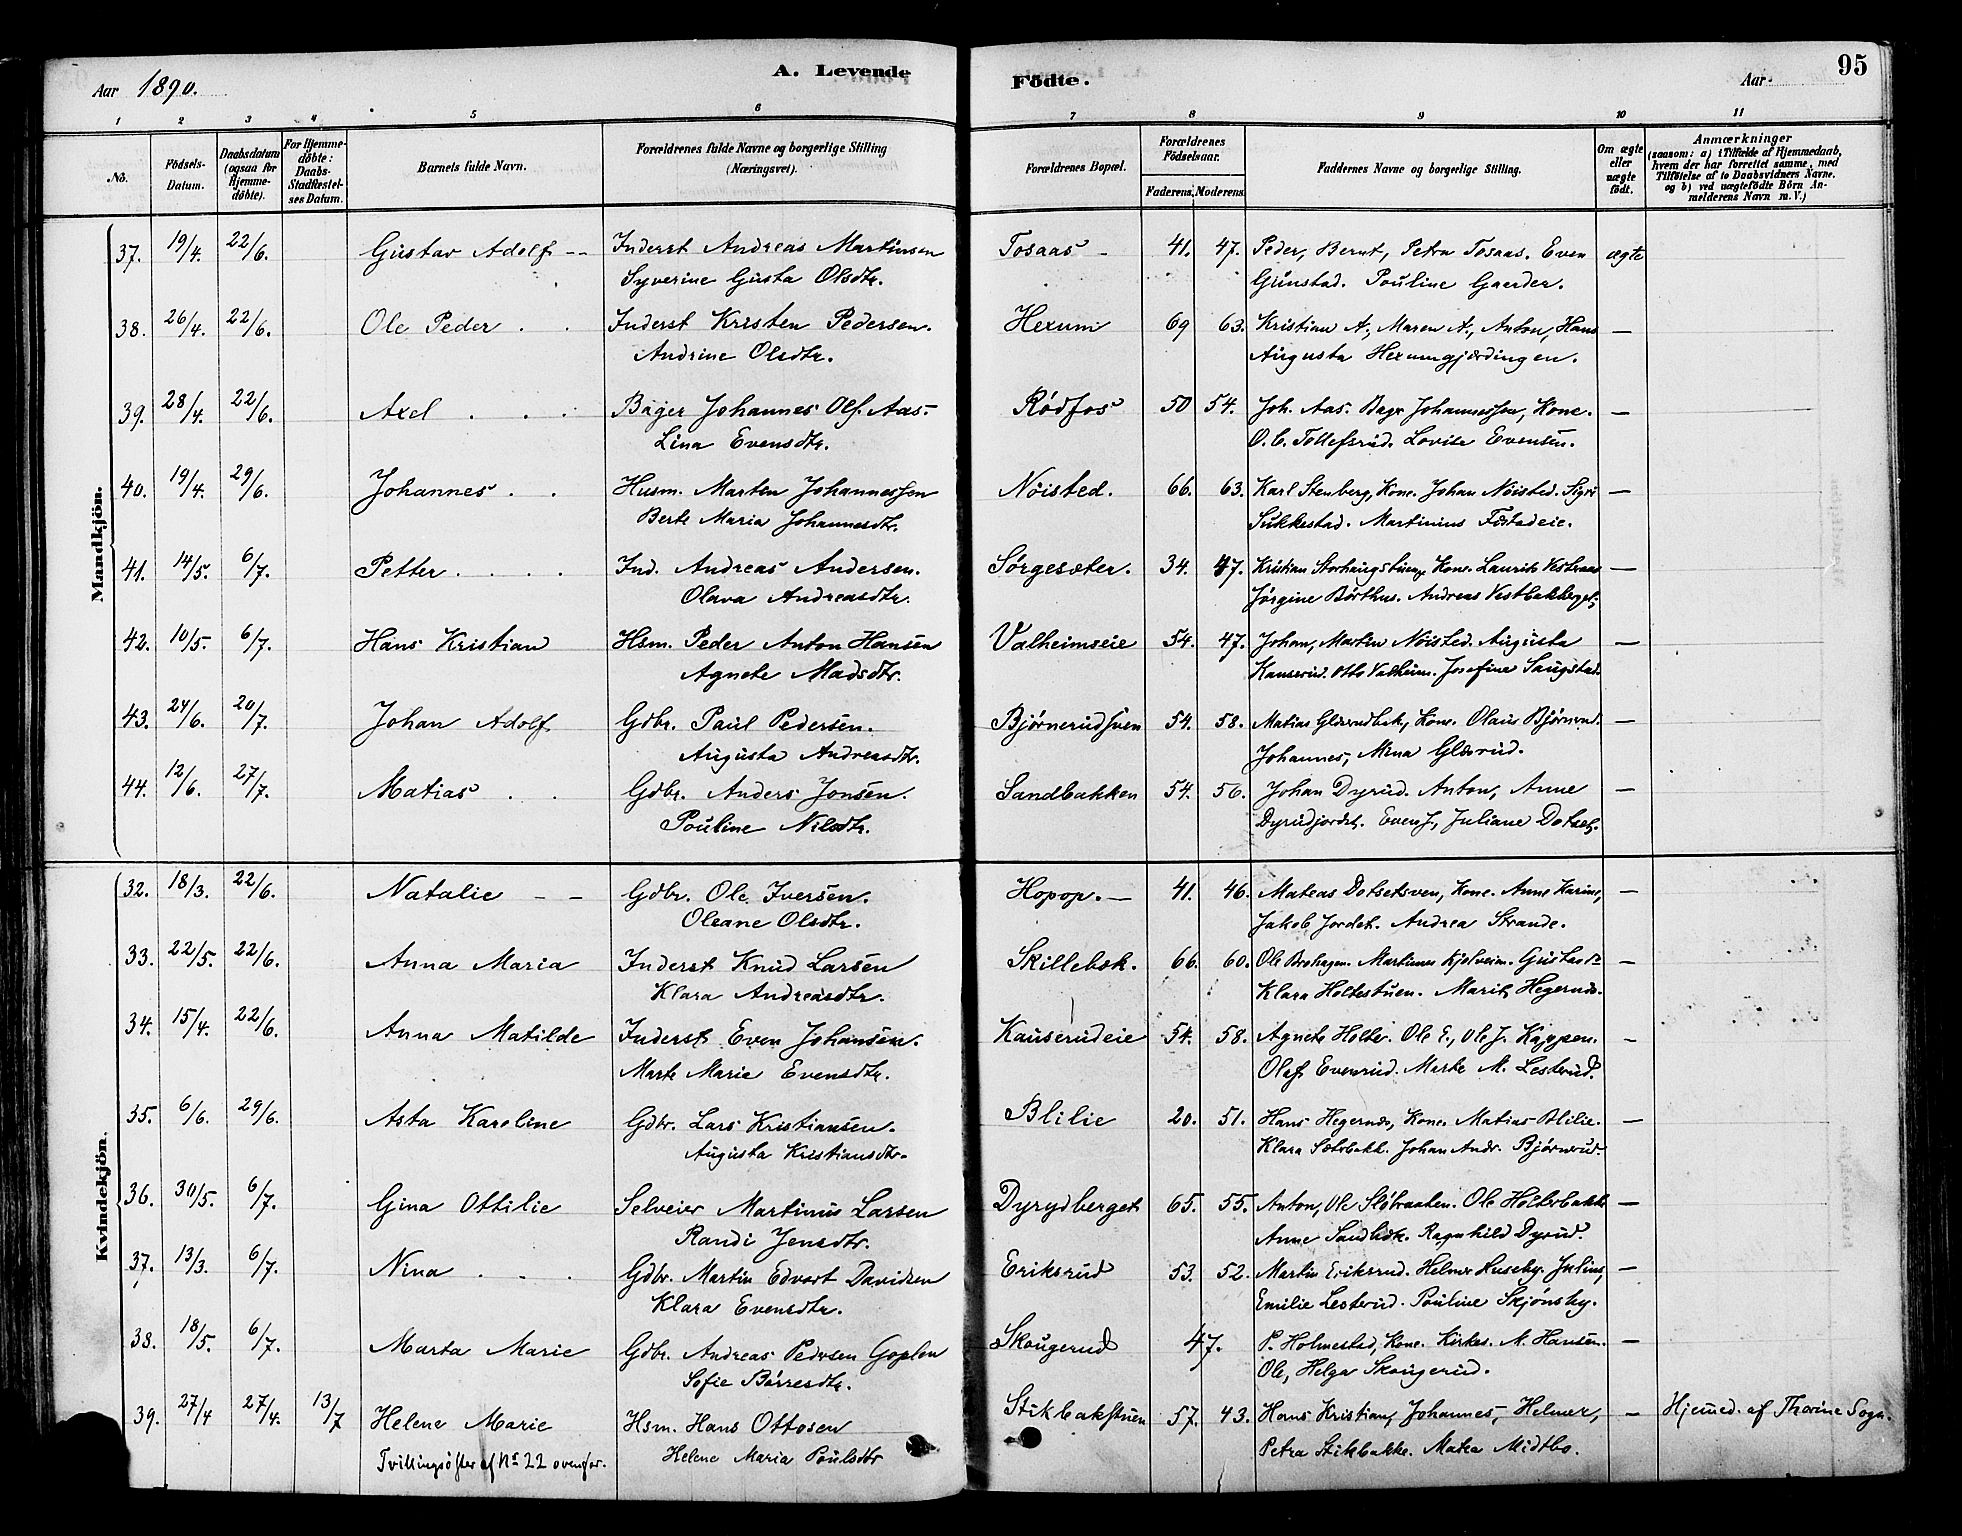 Aar 1890. A. Levende Födte. Aar 95
1 2 3 4 5 6 7 8 9 10 11
No. Födsels-Datum. Daabsdatum (ogsaa for Hjemmedøbte). For Hjemmedøbte: Daabs-Stadfæstelses Datum. Barnets fulde Navn. Forældrenes fulde Navne og borgerlige Stilling (Næringsvei). Forældrenes Bopæl. Forældrenes Fødselsaar. Faderens. Moderens. Faddernes Navne og borgerlige Stilling. Om ægte eller uægte født. Anmærkninger (saasom: a) i Tilfælde af Hjemmedaab, hvem der har forrettet samme, med Tilføielse af to Daabsvidners Navne. og b) ved uægtefødte Börn Anmelderens Navn m. V.)
Mandkjön.
37. 19/4. 22/6. Gustav Adolf -- Inderst Andreas Martinsen Tosaas - 41. 47. Peder, Bernt, Petra Tosaas. Even ægte
Syverine Gusta Olsdtr. Gunstad. Pouline Gaarder.
38. 26/4. 22/6. Ole Peder . . Inderst Kristen Pedersen. Hexum 69 63. Kristian A., Maren A., Anton, Hans —
Andrine Olsdtr. Augusta Hexumgjærdingen.
39. 28/4. 22/6. Axel . . . Bager Johannes Ols. Aas. Rødfos 50 54. Joh. Aas. Bager Johannessen, Kone. —
Lina Evensdtr. O. C. Tollefsrud. Lovise Evensen.
40. 19/4. 29/6. Johannes . . Husm. Marten Johannessen Nöisted. 66. 63. Karl Stenberg, Kone. Johan Nöisted. Sigri —
Berte Maria Johannesdtr. Sukkestad. Martinius
41. 14/5. 6/7. Petter . . . . Ind. Andreas Andersen. Sörgesæter. 34. 47. Kristian Storhaugstuen, Kone. Laurits —
Olava Andreasdtr. Jörgine Börthus. Andreas Vestbakberget.
42. 10/5. 6/7. Hans Kristian Hsm. Peder Anton Hansen Valheimseie 54. 47. Johan, Martin Nöisted. Augusta —
Agnete Madsdtr. Kauserud. Otto Valheim. Josefine Saugstad.
43. 24/6. 20/7. Johan Adolf Gdbr. Paul Pedersen. Bjørnerudsveen 54. 58. Matias Glæsrudbak, Kone. Olaus Bjørnerud. —
Augusta Andreasdtr. Johannes, Mina Glæsrud.
44. 12/6. 27/7. Matias . . Gdbr. Anders Jonsen. Sandbakken 54. 56. Johan Dyrud. Anton, Anne —
Pouline Nilsdtr. Dyrudjordet. Even J., Juliane Dotset.
Kvindekjön.
32. 18/3. 22/6. Natalie -- Gdbr. Ole Iversen. Hopop. — 41. 46. Mateas Dotsetsven, Kone. Anne Karine, —
Oleane Olsdtr. Jakob Jordet. Andrea Strande.
33. 22/5. 22/6. Anna Maria Inderst Knud Larsen Skillebæk. 66. 60. Ole Brohagen. Martinus Kjolveim. Gustav —
Klara Andreasdtr. Klara Holtestuen. Marit Hegernæs.
34. 15/4. 22/6. Anna Matilde Inderst Even Johansen. Kauserudeie 54. 58. Agnete Holte. Ole E., Ole J. Kappen. —
Marte Marie Evensdtr. Olaf Evenrud. Marte M. Lesterud.
35. 6/6. 29/6. Asta Karoline Gdbr. Lars Kristiansen. Blilie 20. 51. Hans Hegernæs, Kone. Matias Blilie. —
Augusta Kristiansdtr. Klara Sætrbakk. Johan Andr. Bjørnerud.
36. 30/5. 6/7. Gina Ottilie Selveier Martinus Larsen Dyrydberget 65. 55. Anton, Ole Slöbraaten. Ole Holtebakk —
Randi Jensdtr. Anne Sandbæk. Ragnhild Dyrud.
37. 13/3. 6/7. Nina . . . Gdbr. Martin Edvart Davidsen Eriksrud 53. 52. Martin Eriksrud. Helmer Huseby. Julius, —
Klara Evensdtr. Emilie Lesterud. Pouline Skjönsby.
38. 18/5. 6/7. Marta Marie Gdbr. Andreas Pedersen Goplen Skougerud 47. P. Holmestad, Kone. Kirkes. M. Hansen. —
Sofie Börresdtr. Ole, Helga Skougerud.
39. 27/4 27/4. 13/7 Helene Marie Hsm. Hans Ottosen Stikbakstuen 57. 43. Hans Kristian, Johannes, Helmer, — Hjemmed. af Thorine Sogn.
Tvillingsøster af No 22 ovenfor. Helene Maria Poulsdtr Petra Stikbakke. Matea Midtbo.